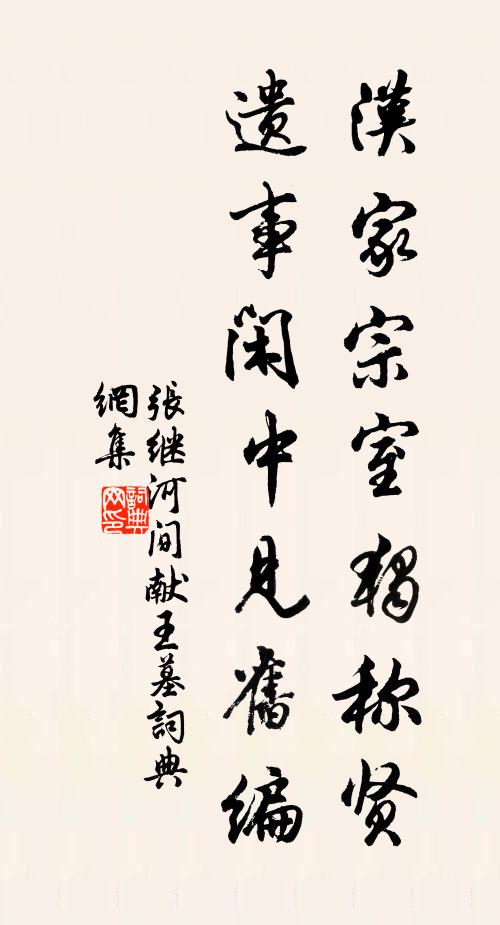 漢家宗室独称贤
遗事闲中見舊编
張继河间献王墓詞典
網集
詞典
网印